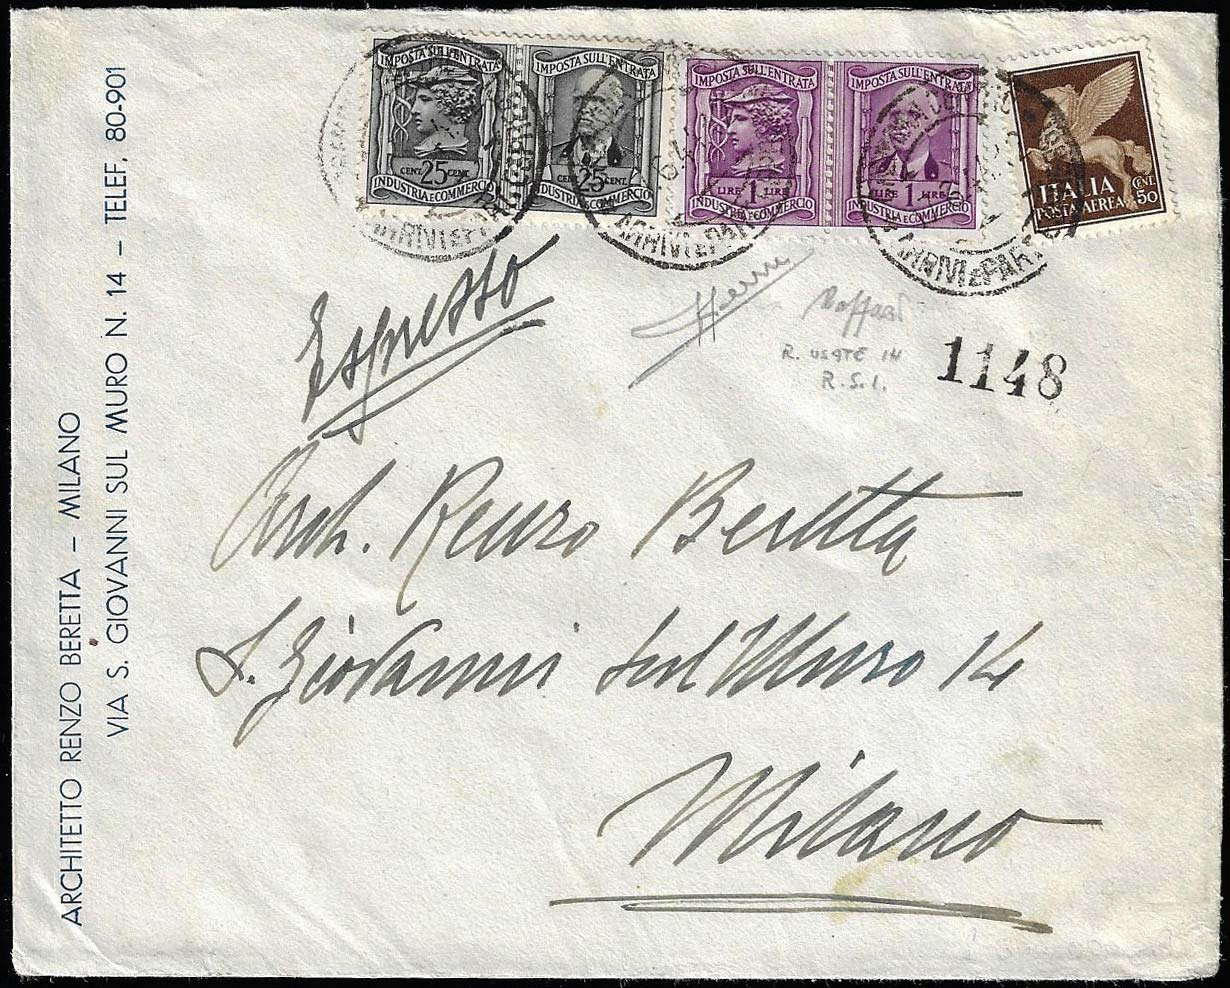 IMPOSTA SULL'ENTRATA
CENT. 25 CENT.
INDUSTRIA E COMMERCIO
IMPOSTA SULL'ENTRATA
CENT. 25 CENT.
INDUSTRIA E COMMERCIO
IMPOSTA SULL'ENTRATA
LIRE 1 LIRE
INDUSTRIA E COMMERCIO
IMPOSTA SULL'ENTRATA
LIRE 1 LIRE
INDUSTRIA E COMMERCIO
ITALIA
POSTA AEREA
CENT.
50
ARRIVI E PAR
Espresso
R. USATE IN
R.S.I.
1148
Arch. Renzo Beretta
S. Giovanni sul Muro 14
Milano
ARCHITETTO RENZO BERETTA – MILANO
VIA S. GIOVANNI SUL MURO N. 14 – TELEF. 80-901